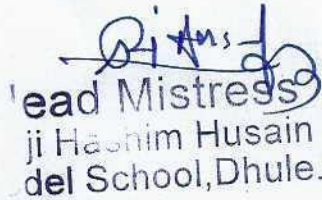 'ead Mistress
ji Hashim Husain
del School,Dhule.